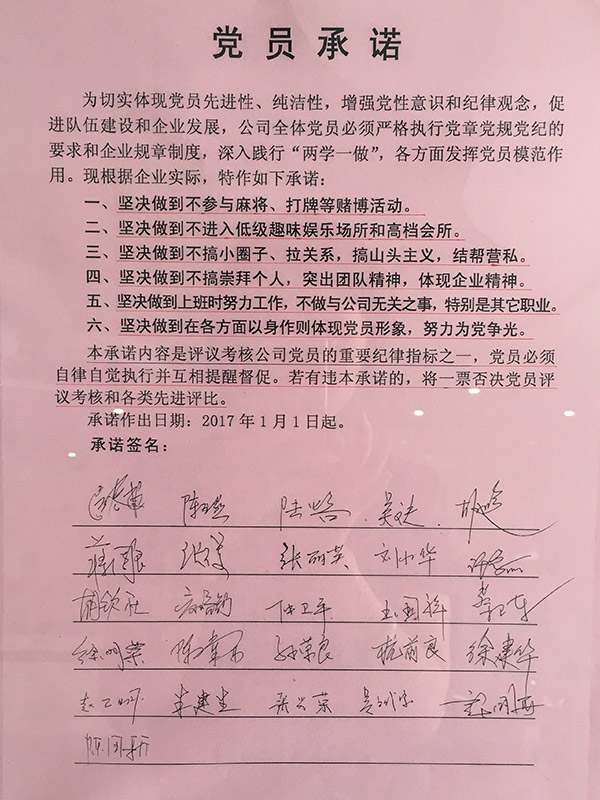 党员承诺
为切实体现党员先进性、纯洁性，增强党性意识和纪律观念，促
进队伍建设和企业发展，公司全体党员必须严格执行党章党规党纪的
要求和企业规章制度，深入践行“两学一做”，各方面发挥党员模范作
用。现根据企业实际，特作如下承诺：
一、坚决做到不参与麻将、打牌等赌博活动。
二、坚决做到不进入低级趣味娱乐场所和高档会所。
三、坚决做到不搞小圈子、拉关系，搞山头主义，结帮营私。
四、坚决做到不搞崇拜个人，突出团队精神，体现企业精神。
五、坚决做到上班时努力工作，不做与公司无关之事，特别是其它职业。
六、坚决做到在各方面以身作则体现党员形象，努力为党争光。
本承诺内容是评议考核公司党员的重要纪律指标之一，党员必须
自律自觉执行并互相提醒督促。若有违本承诺的，将一票否决党员评
议考核和各类先进评比。
承诺作出日期：2017年1月1日起。
承诺签名：
张丽英 刘小华
徐明荣 孙荣良 杭前良 徐建华
李建生 张兴荣